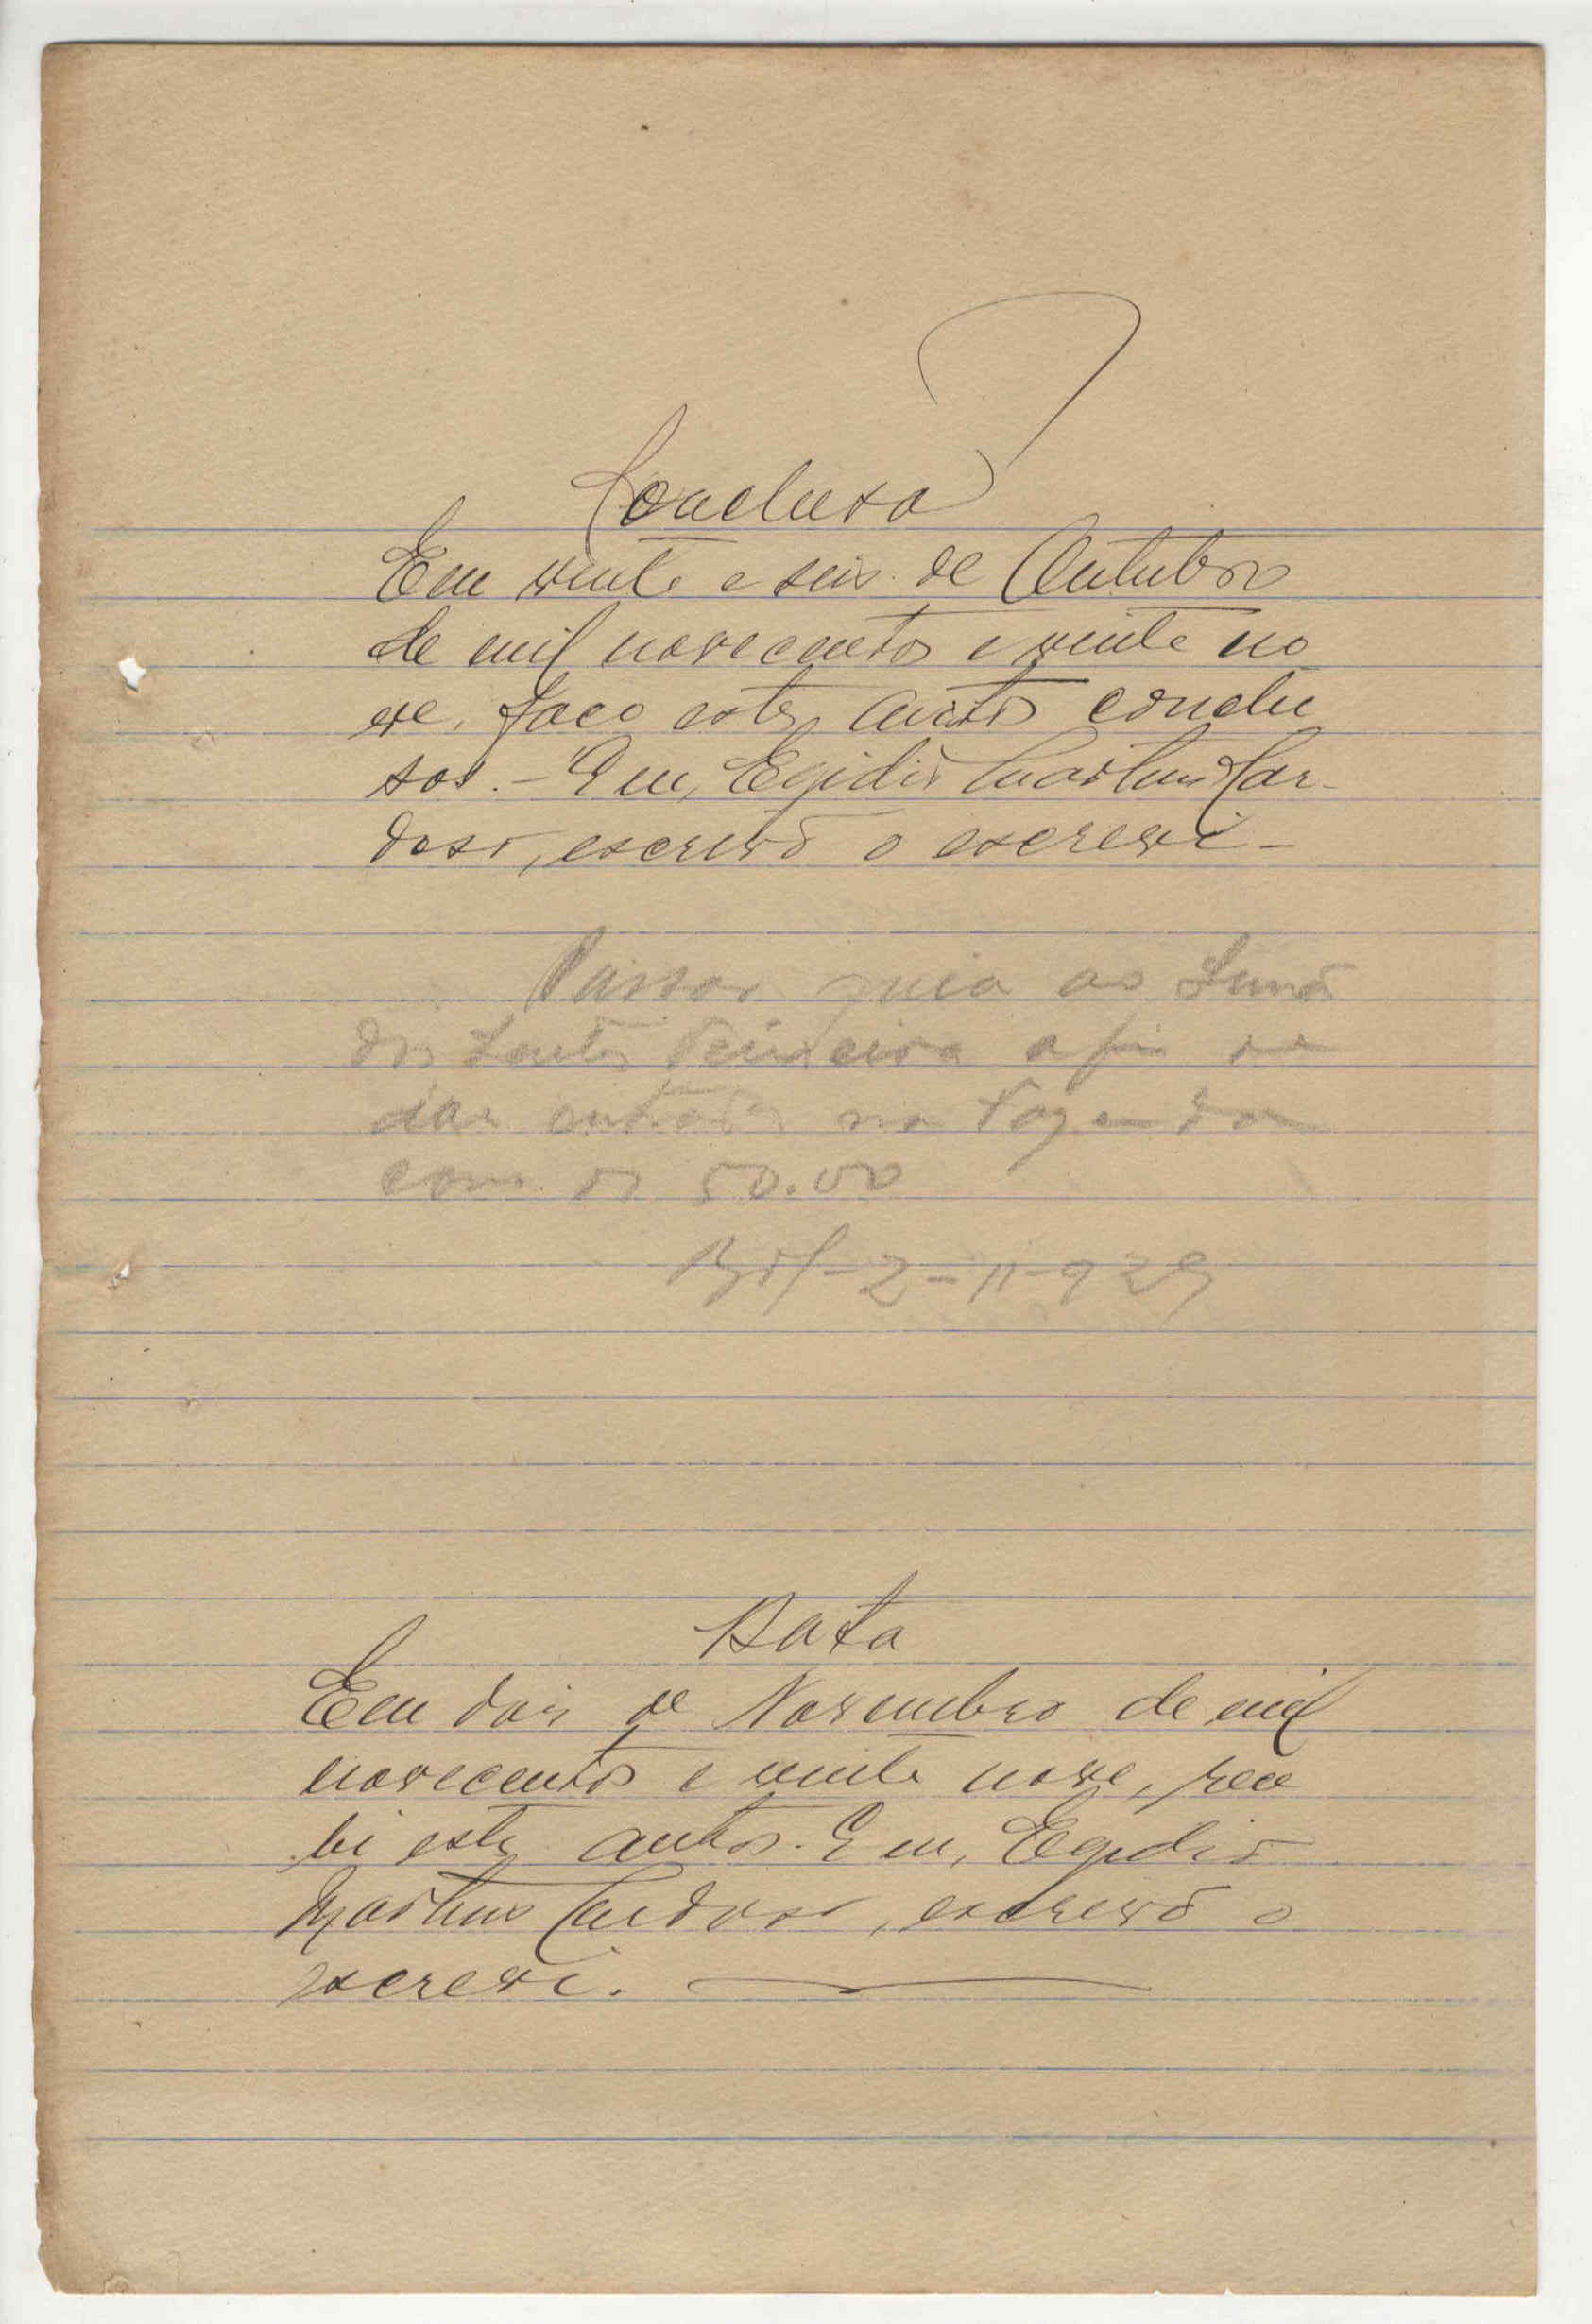 Concluso
Em vinte e seis de Outubro
de mil novecentos e vinte no
ve, faço estes autos conclu
sos. - Eu, Egidio Martins Car-
doso, escrivã o escrevi -
Passar guia ao
dos Santos Teixeira a fim de
dar entrada na Fazenda
com os 50.00
2-11-929
Data
Em dois de Novembro de mil
novecentos e vinte nove, rece
bi estes autos. Eu, Egidio
Martins Cardoso, escrivã o
escrevi.